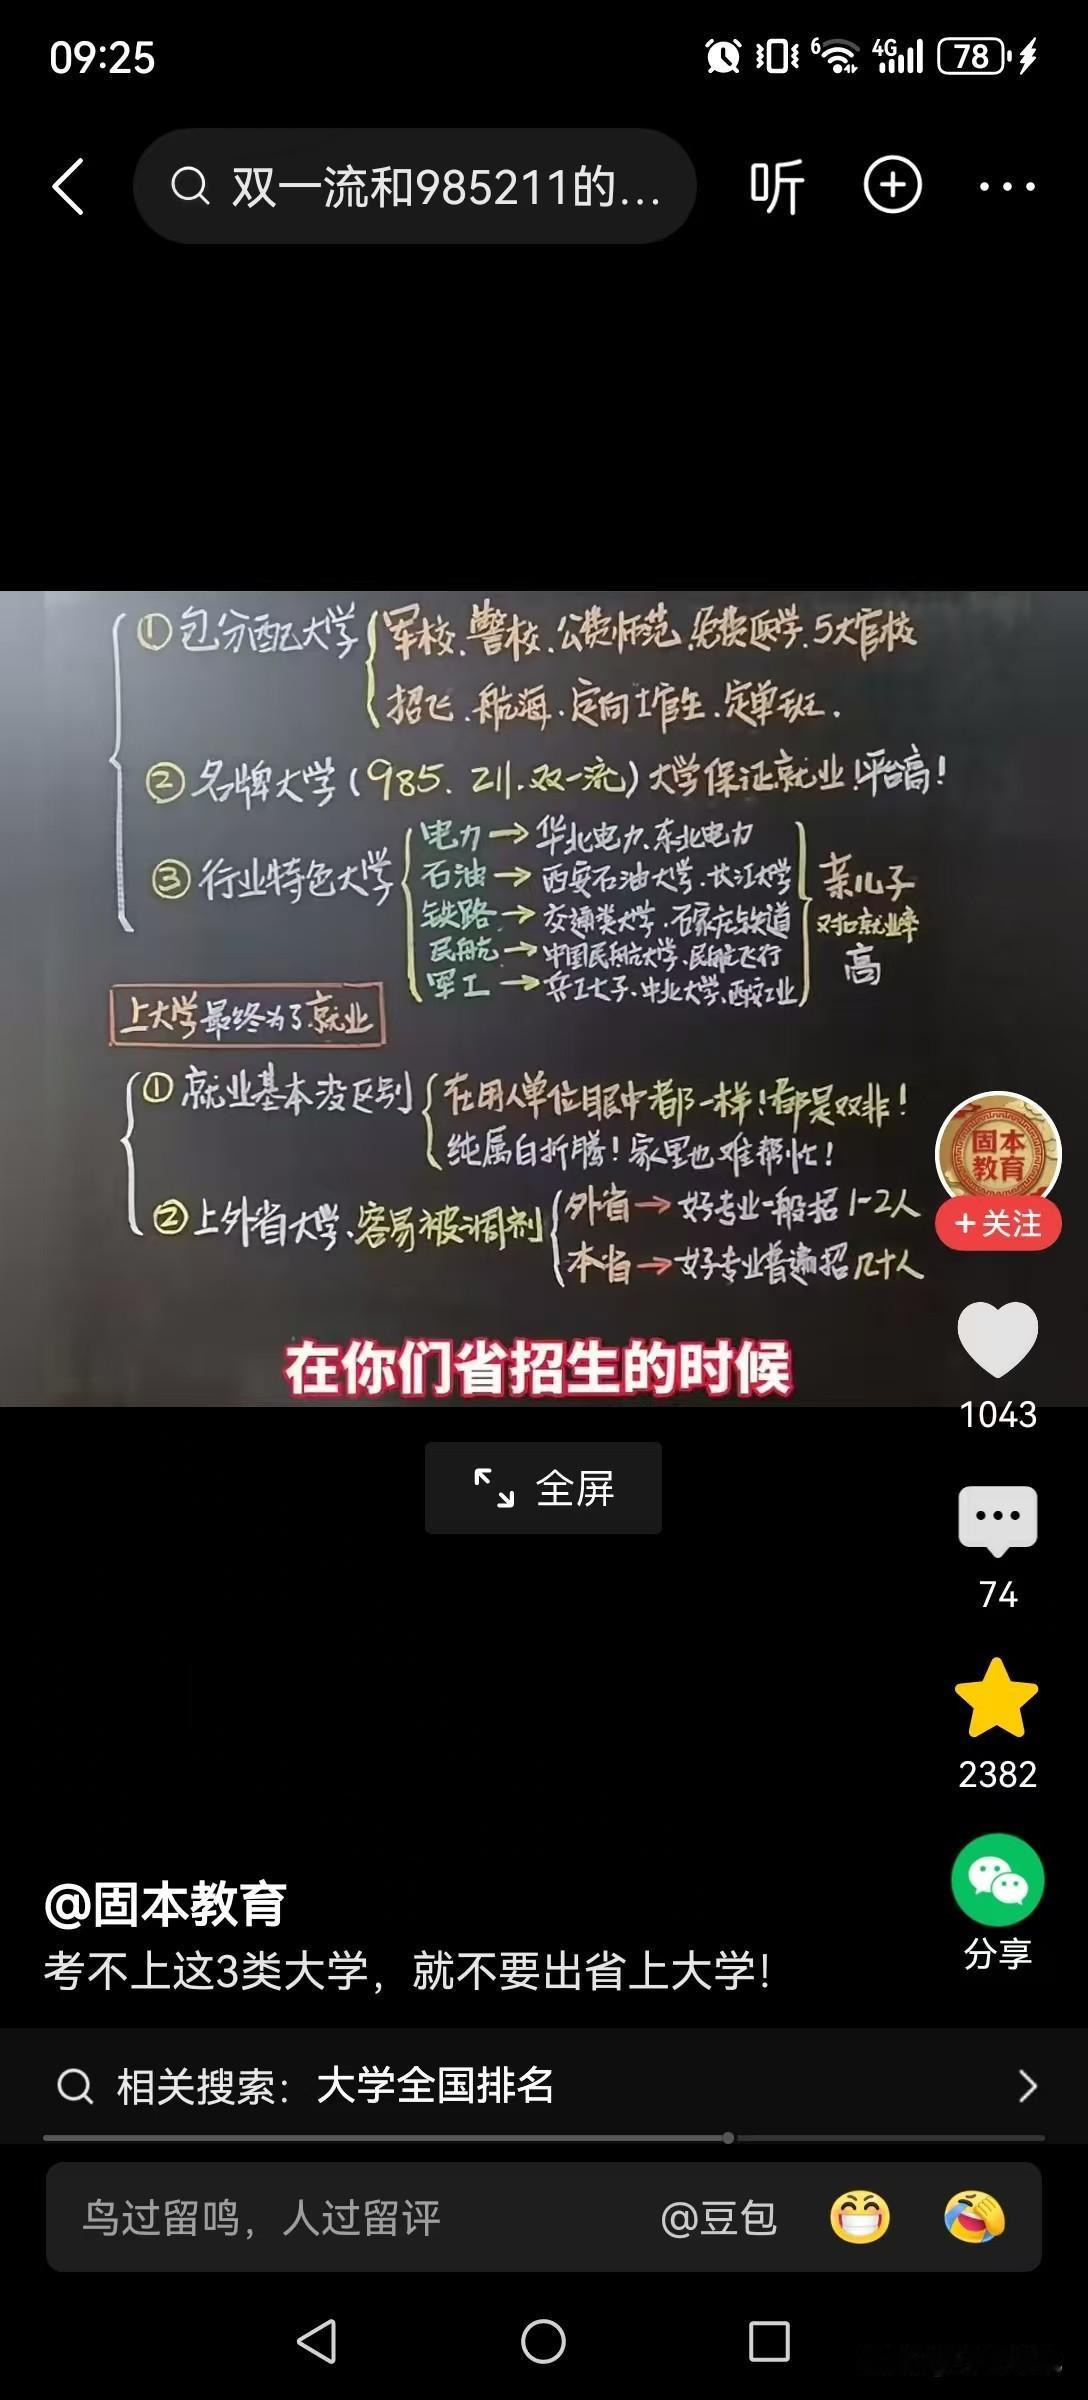 09:25
6
4G
78
双一流和985211的...
听
①包分配大学
军校.警校.公费师范.免费医学.5大官校
招飞.航海.定向士官生.定单班.
②名牌大学(985.211.双一流)大学保证就业!平台高!
③行业特色大学
电力→华北电力.东北电力
石油→西安石油大学.长江大学
铁路→交通类大学.石家庄铁道
民航→中国民航大学.民航飞行
军工→兵工七子.中北大学.西安工业
亲儿子
对口就业率
高
上大学最终为了就业
①就业基本没区别
在用人单位眼中都一样!都是双非!
纯属白折腾!家里也难帮忙!
②上外省大学.容易被调剂
外省→好专业一般招1-2人
本省→好专业普遍招几十人
在你们省招生的时候
固本
教育
+关注
1043
全屏
74
2382
分享
@固本教育
考不上这3类大学，就不要出省上大学!
相关搜索：大学全国排名
鸟过留鸣，人过留评
@豆包